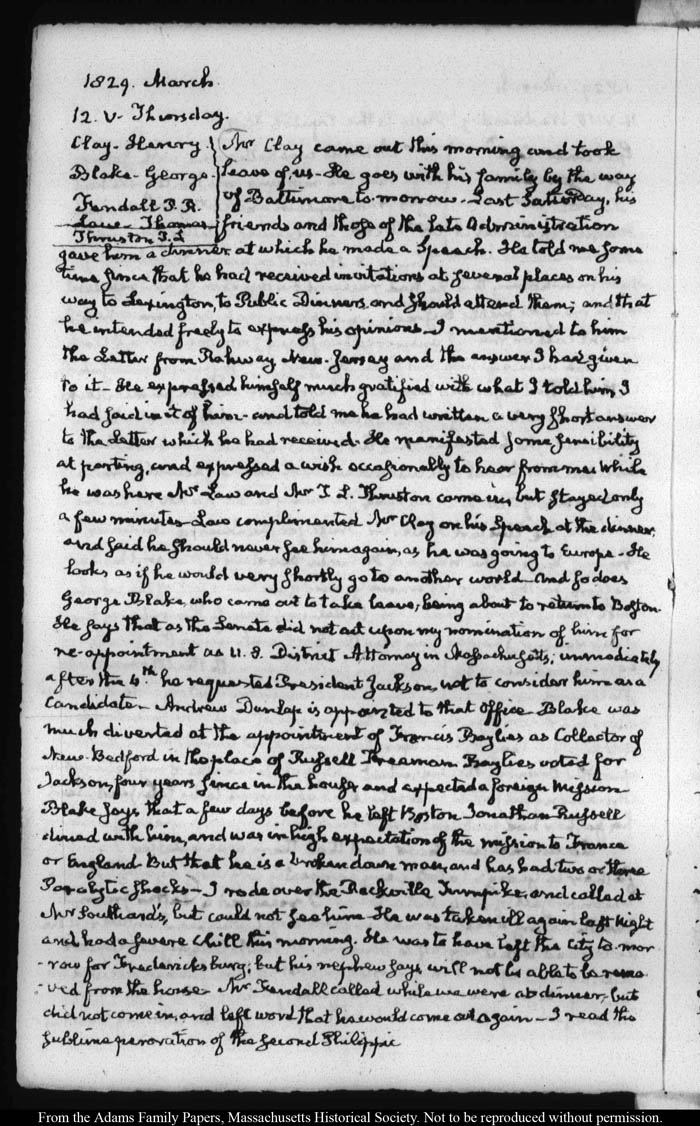 1829. March.
12. V. Thursday.
Clay-Henry. Mr Clay came out this morning and took
Blake-George. leave of us. He goes with his family by the way
Fendall P. R. of Baltimore to-morrow. Last Saturday, his
Law Thomas friends and those of the late Administration
Thruston T. L
gave him a dinner at which he made a Speech. He told me some
time since that he had received invitations at several places on his
way to Lexington, to Public Dinners and should attend them; and that
he intended freely to express his opinions. I mentioned to him
the Letter from Rahway New-Jersey and the answer I had given
to it. He expressed himself much gratified with what I told him I
had said in it of him. and told me he had written a very short answer
to the Letter which he had received. He manifested some sensibility
at parting, and expressed a wish occasionally to hear from me. While
he was here Mr Law and Mr T. L. Thruston came in, but stayed only
a few minutes. Law complimented Mr Clay on his Speech at the dinner.
and said he should never see him again, as he was going to Europe. He
looks as if he would very shortly go to another world. And so does
George Blake, who came out to take leave, being about to return to Boston.
He says that as the Senate did not act upon my nomination of him for
re-appointment as U.S. District Attorney in Massachusetts; immediately
after the 4th he requested President Jackson, not to consider him as a
Candidate. Andrew Dunlap is appointed to that Office. Blake was
much diverted at the appointment of Francis Baylies as Collector of
New-Bedford in the place of Russell Freeman. Baylies voted for
Jackson, four years since in the house and expected a foreign Mission
Blake says that a few days before he left Boston Jonathan Russell
dined with him, and was in high expectation of the mission to France
or England. But that he is a broken down man, and has had two or three
Paralytic shocks. I rode over the Rockville Turnpike, and called at
Mr Southard's, but could not see him. He was taken ill again last Night
and had a severe Chill this morning. He was to have left the City to-mor
-row for Fredericksburg; but his nephew says will not be able to be remo
-ved from the house. Mr Fendall called while we were at dinner, but
did not come in, and left word that he would come out again. I read the
sublime peroration of the second Philippic